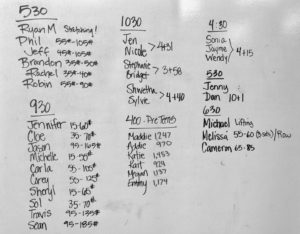 530
Ryan M Stretching!
Phil 95#-105#
Jeff 45#-105#
Brandon 35#-50#
Rachel 35#-40#
Robin 55#-90#
930
Jennifer 15-60#
Cloe 35-70#
Jason 95-165#
Michelle 15-50#
Carla 55-105#
Carey 55-125#
Sheryl 15-65#
Sol 35-70#
Travis 95-135#
Sean 95-185#
1030
Jen
Nicole > 4+31
Stephanie
Bridget > 3+58
Shwetha
Sylvie > 4+40
400 - Pre Teens
Maddie 1,247
Addie 970
Katie 1,453
Kart 924
Megan 1,137
Emily 1,174
4:30
Sonia
Jayme > 4+15
Wendy
530
Jenny
Dan 10+1
630
Michael Lifting
Melissa 55-60 /Row
Cameron 65-85